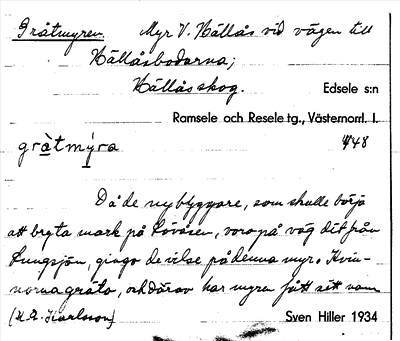 Gråtmyren. Myr V. Hällås vid vägen till
Hällåsbodarna;
Hällåsskog. Edsele s:n
Ramsele och Resele tg., Västernorrl. l.
gråtmýra 48
Då de nybyggare, som skulle börja
att bryta mark på Lövåsen, voro på väg dit från
Lungsjön, gingo de vilse på denna myr. Kvin-
norna gräto, och därav har myren fått sitt namn
(K.A. Karlsson) Sven Hiller 1934